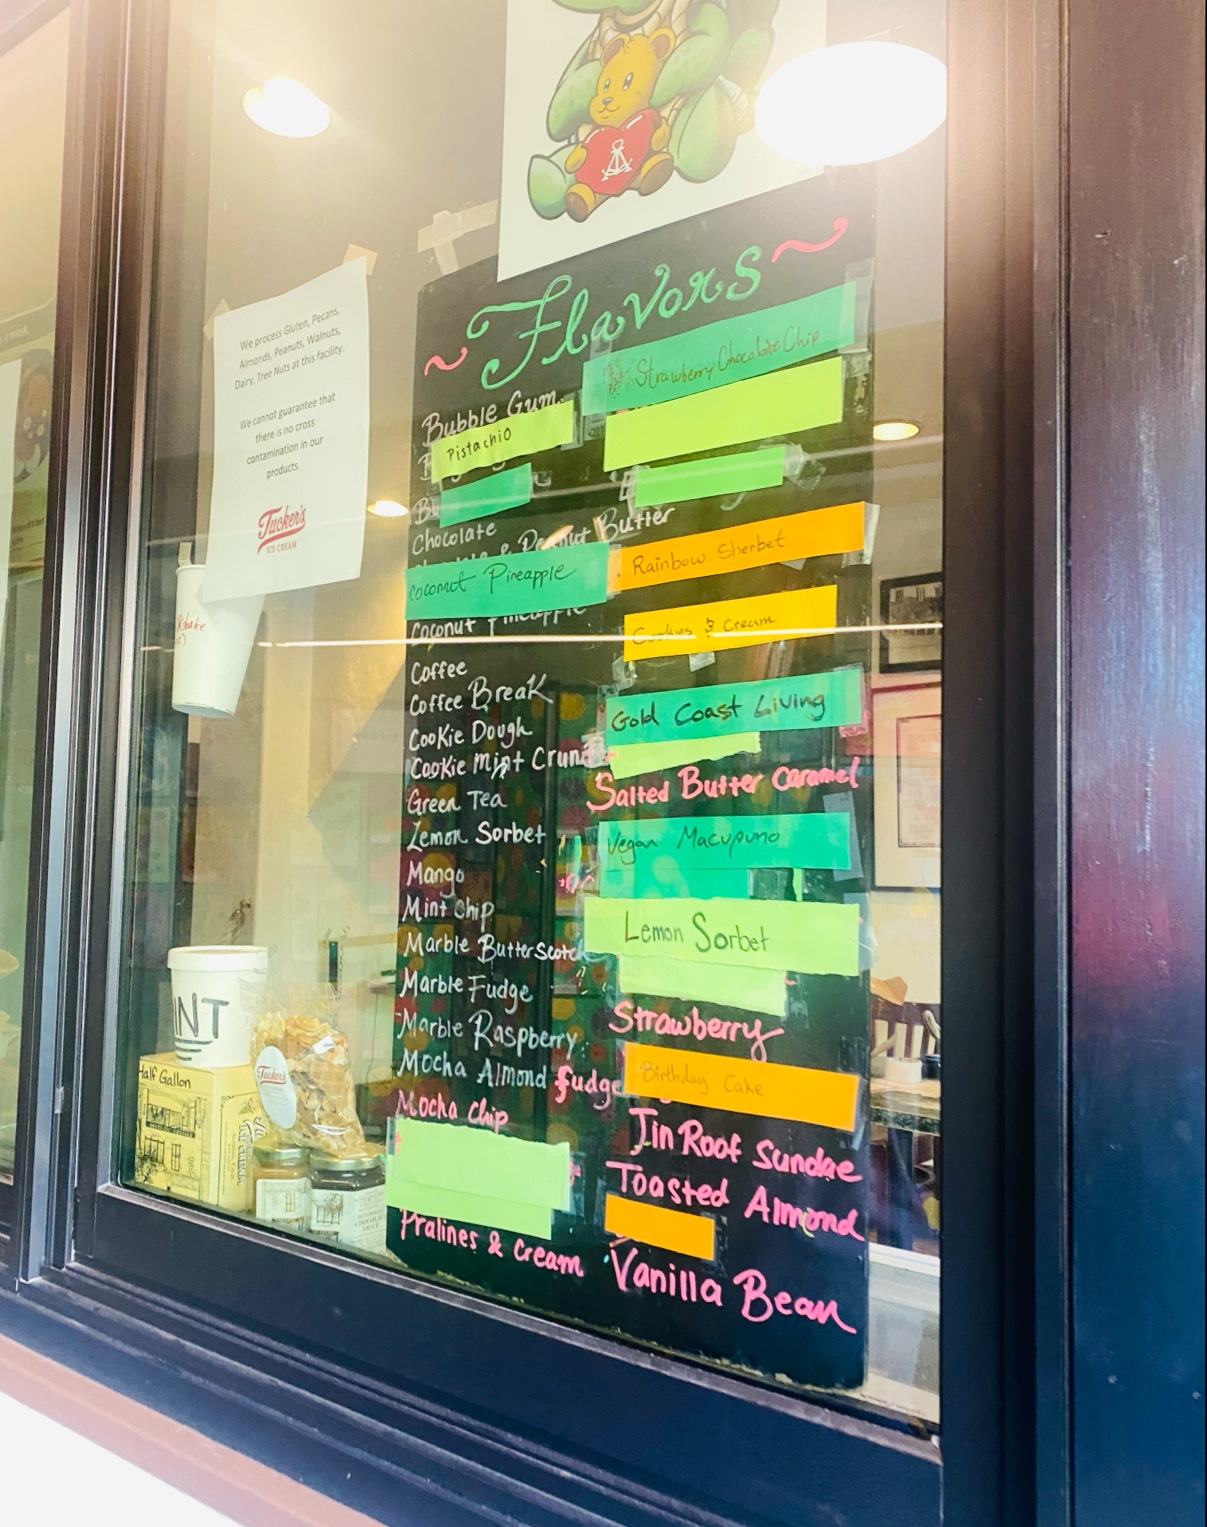 We process Gluten, Pecans,
Almonds, Peanuts, Walnuts,
Dairy, Tree Nuts at this facility.
We cannot guarantee that
there is no cross
contamination in our
products.
Tucker's
ICE CREAM
Flavors
Bubble Gum
Pistachio
Chocolate
& Peanut Butter
Coconut Pineapple
Coconut Pineapple
Coffee
Coffee Break
Cookie Dough
Cookie Mint Crunch
Green Tea
Lemon Sorbet
Mango
Mint Chip
Marble Butterscotch
Marble Fudge
Marble Raspberry
Mocha Almond fudge
Mocha Chip
Pralines & Cream
Strawberry Chocolate Chip
Rainbow Sherbet
Cookies & Cream
Gold Coast Living
Salted Butter Caramel
Vegan Macupuno
Lemon Sorbet
Strawberry
Birthday Cake
Tin Roof Sundae
Toasted Almond
Vanilla Bean
INT
Half Gallon
Tucker's